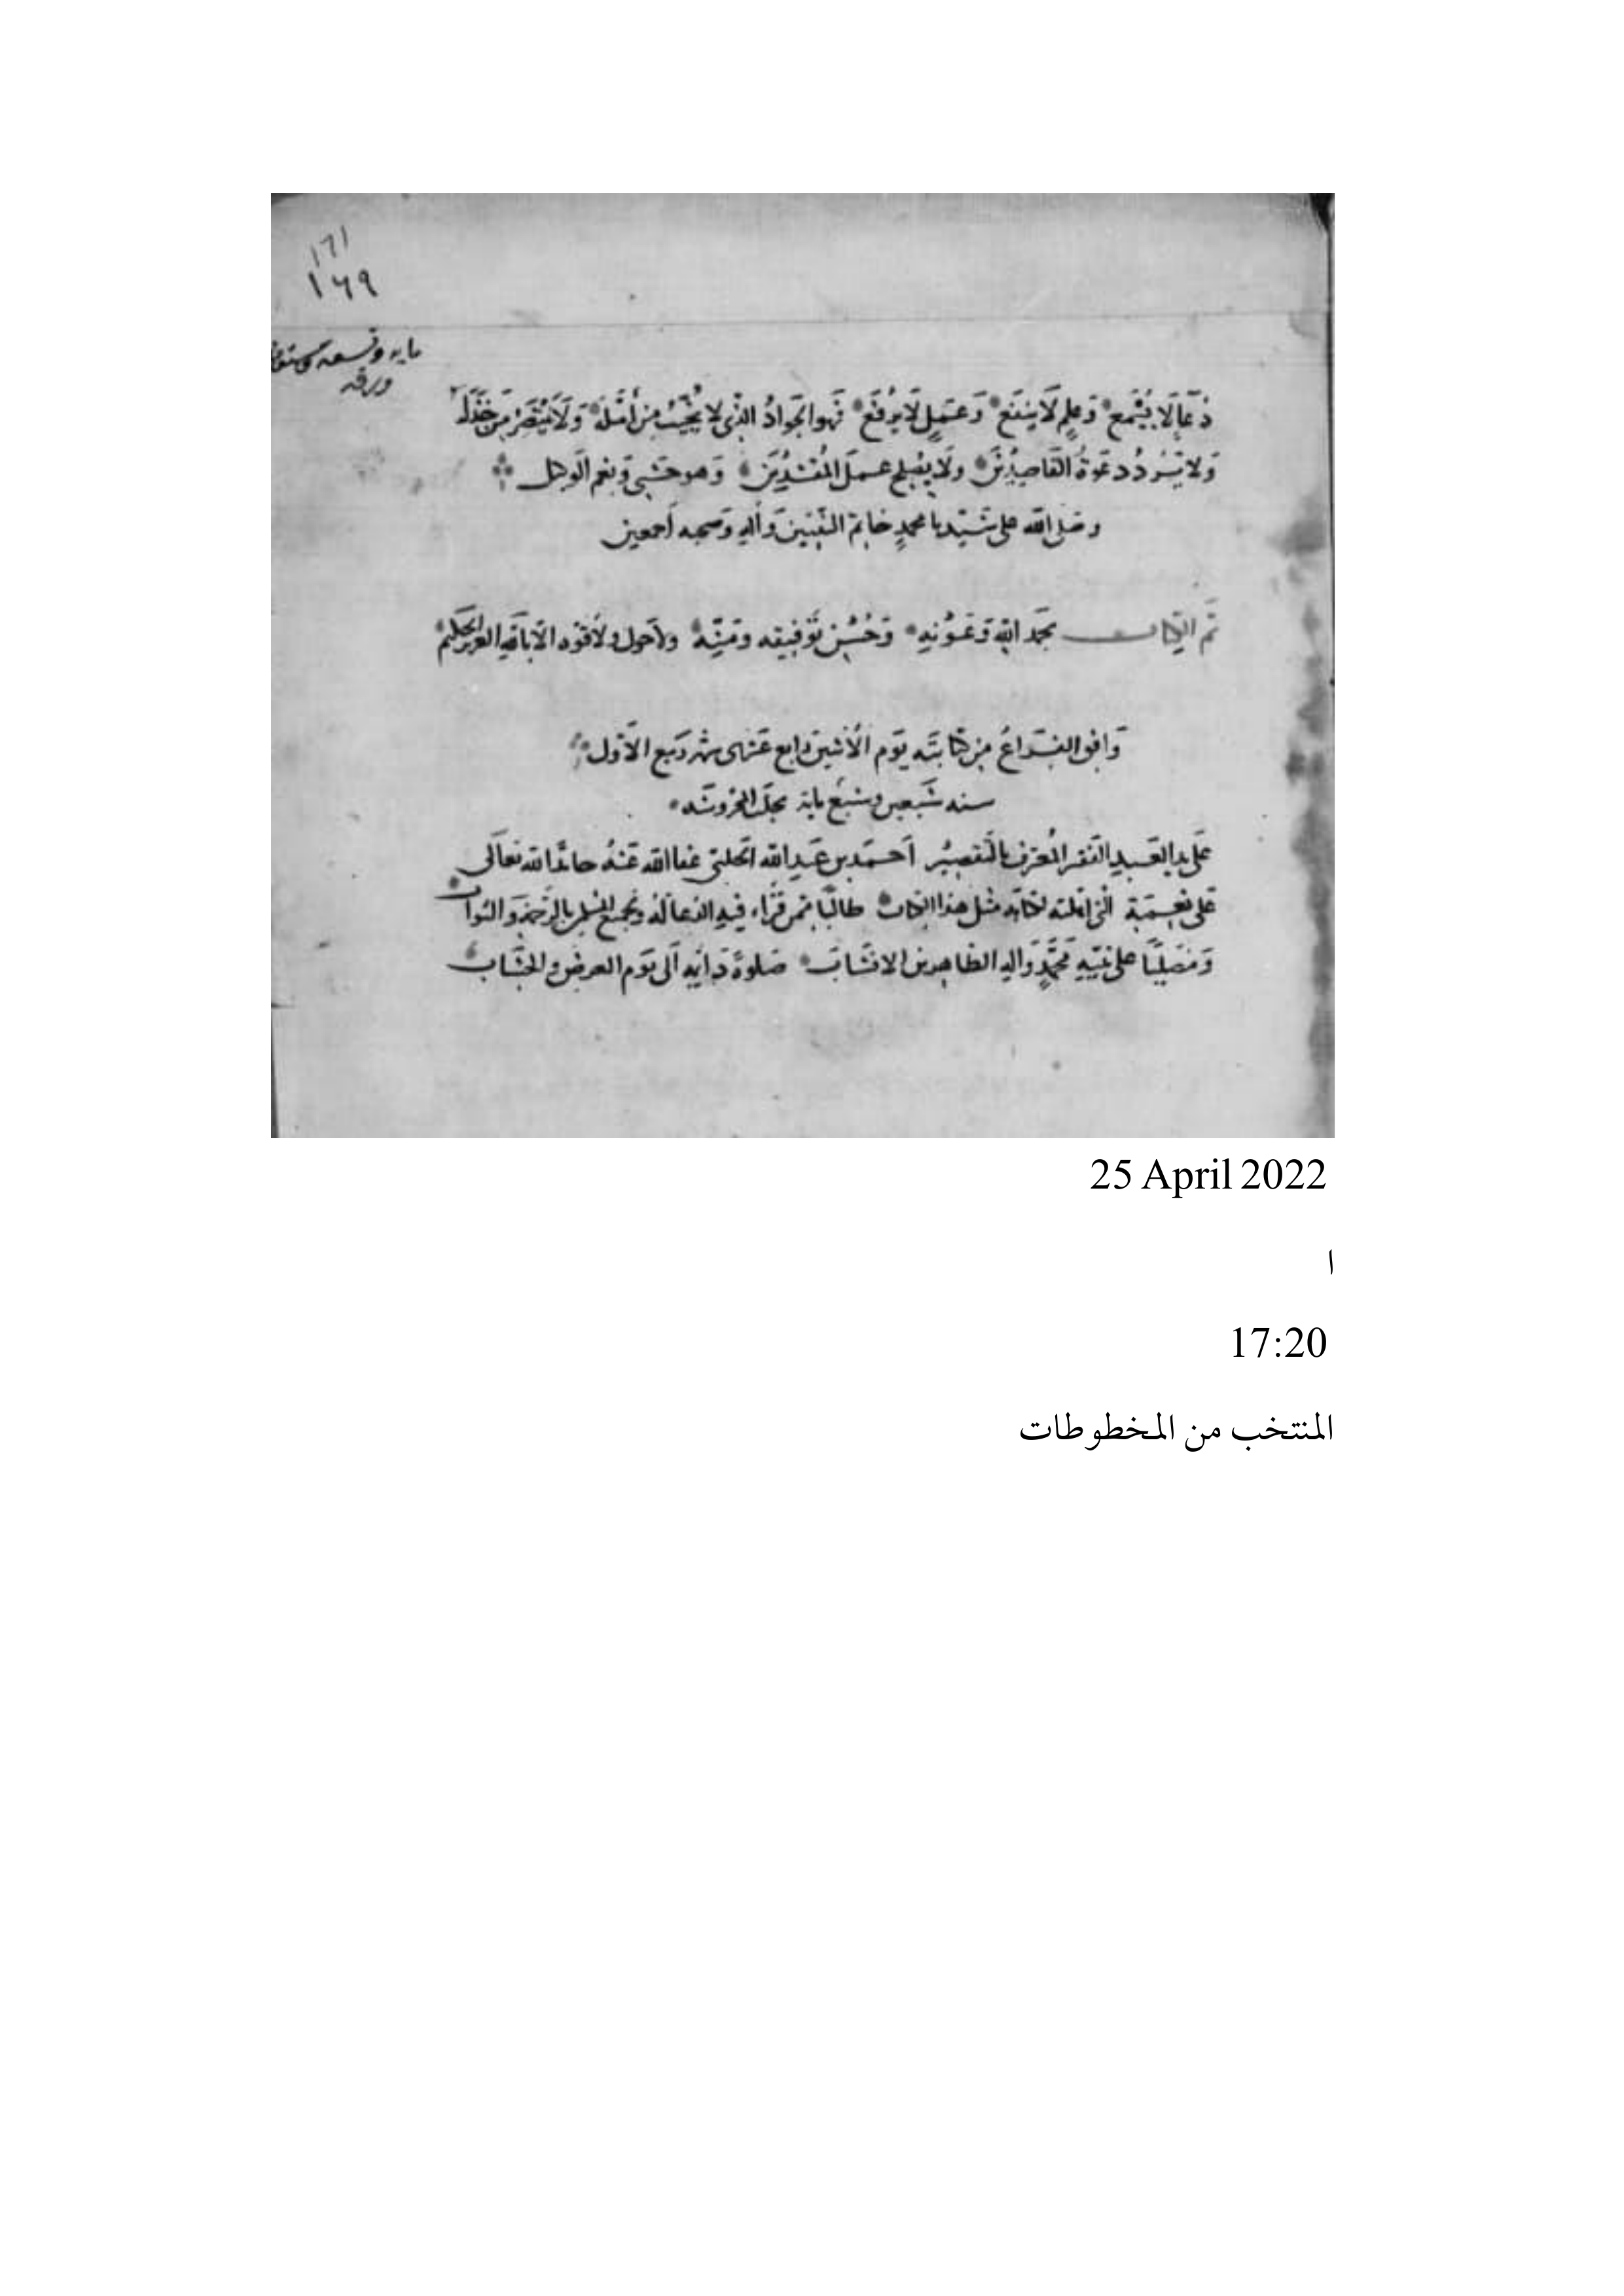 ١٦١
١٦٩
مايه وتسعه وستون
ورقه
دُعَآءٍ لَا يُسْمَع وَعِلمٍ لَا يَنفَع وَعَمَلٍ لَا يُرفَع فَهو الجَوادُ الذي لا يُخَيِّبُ مِن أَمَّلَهُ وَلَا يَنْتَصِرُ مَن خَذَلَهُ
وَلا يَردُّ دعَوةُ القَاصِدِينَ ولَا يُصْلِح عملَ المُفسْدِينَ وَهو حَسْبي وَنِعم الوكيل
وصَلى الله على سَيّدنا محمدٍ خاتم النَّبيينَ وَآلهِ وصحبه أجمعين
تَم الكتاب بحَمد اللهِ وَعَوْنهِ وَحُسْن تَوْفيقه ومَنِّه ولا حول ولا قوه الا باللهِ العزيز الحَكيم
وَافق الفَراغُ مِن كتابتَه يَوم الأثنين رابع عَشرى شهر رَبيع الأوّل
سنه سَبعين وسَبع ماية بحلَب المحرُوسَه
عَلى يد العَبدِ الفقير المُعترف بالتَقصيْر أحمَد بن عَبدِ الله الحلبي عَفا الله عَنهُ حامدًا لله تعَالى
عَلى نِعَمِهِ التى لكتابه مثل هذا الكتاب طالبًا ممن قَرَاء فيهِ الدعآ له ولجميع المسلمين بالرَحمَة وَالثواب
وَمُصَليًا على نَبيّهِ مُحَمَّدٍ وَالهِ الطاهرين الانسَاب صَلوةً دَائمه الَى يَوم العَرض والحسَاب
25 April 2022
ا
17:20
المنتخب من المخطوطات